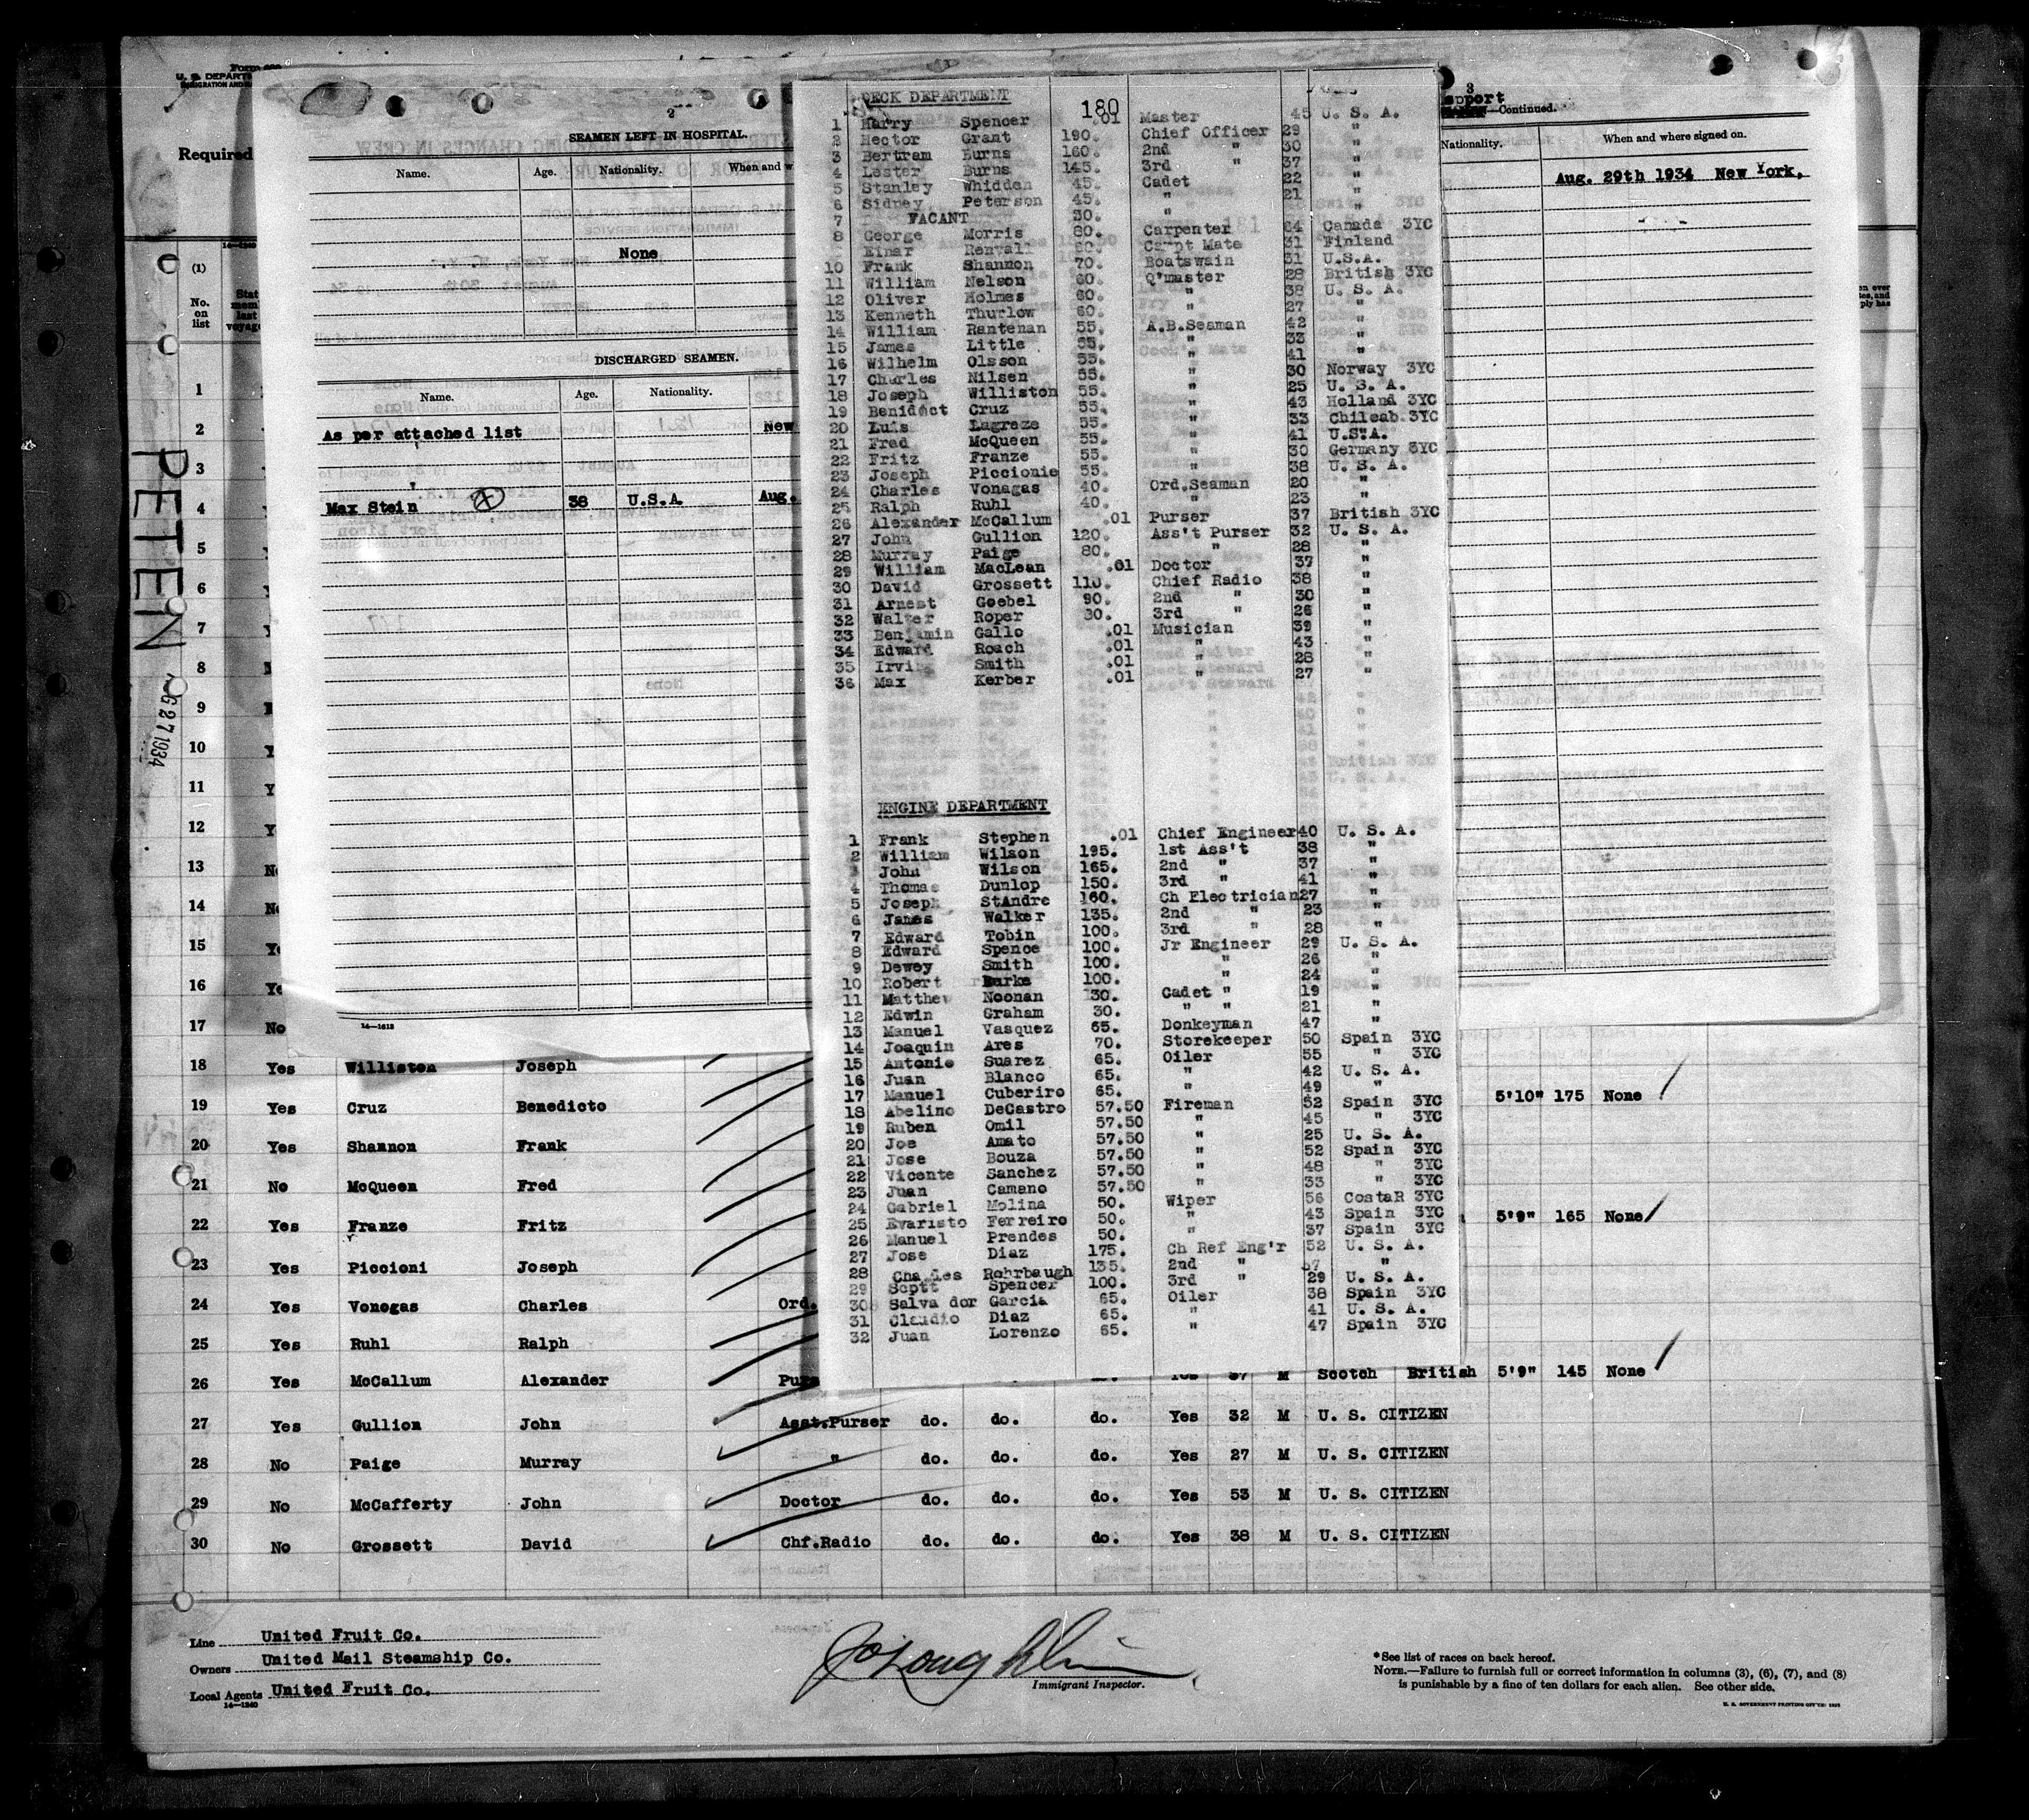 U. S. DEPART
IMMIGRATION AND
Required
(1)
No. on list
PETEN
AUG 27 1934
2
SEAMEN LEFT IN HOSPITAL.
Name. Age. Nationality. When and w
None
DISCHARGED SEAMEN.
Name. Age. Nationality.
As per attached list New
Max Stein 38 U.S.A. Aug.
14—1613
3
—Continued.
Nationality. When and where signed on.
Aug. 29th 1934 New York,
DECK DEPARTMENT
180
1 Harry Spencer .01 Master 45 U. S. A.
2 Hector Grant 190. Chief Officer 29 "
3 Bertram Burns 160. 2nd " 30 "
4 Lester Burns 145. 3rd " 37 "
5 Stanley Whidden 45. Cadet 22 "
6 Sidney Peterson 45. " 21 "
7 FACANT 30. "
8 George Morris 80. Carpenter 64 Canada 3YC
9 Einar Renvall 60. Carpt Mate 31 Finland
10 Frank Shannon 70. Boatswain 31 U.S.A.
11 William Nelson 60. Q'master 28 British 3YC
12 Oliver Holmes 60. " 38 U. S. A.
13 Kenneth Thurlow 60. " 27 "
14 William Rantenan 55. A.B.Seaman 42 "
15 James Little 55. " 33 "
16 Wilhelm Olsson 55. " 41 "
17 Charles Nilsen 55. " 30 Norway 3YC
18 Joseph Williston 55. " 25 U. S. A.
19 Benidect Cruz 55. " 43 Holland 3YC
20 Luis Lagreze 55. " 33 Chileab 3YC
21 Fred McQueen 55. " 41 U.S.A.
22 Fritz Franze 55. " 30 Germany 3YC
23 Joseph Piccionie 55. " 38 U. S. A.
24 Charles Vonagas 40. Ord.Seaman 20 "
25 Ralph Ruhl 40. " 23 "
26 Alexander McCallum .01 Purser 37 British 3YC
27 John Gullion 120. Ass't Purser 32 U. S. A.
28 Murray Paige 80. " 28 "
29 William MacLean .01 Doctor 37 "
30 David Grossett 110. Chief Radio 38 "
31 Arnest Goebel 90. 2nd " 30 "
32 Walter Roper 30. 3rd " 26 "
33 Benjamin Gallo .01 Musician 39 "
34 Edward Roach .01 " 43 "
35 Irving Smith .01 " 28 "
36 Max Kerber .01 " 27 "
ENGINE DEPARTMENT
1 Frank Stephen .01 Chief Engineer 40 U. S. A.
2 William Wilson 195. 1st Ass't 38 "
3 John Wilson 165. 2nd " 37 "
4 Thomas Dunlop 150. 3rd " 41 "
5 Joseph StAndre 160. Ch Electrician 27 "
6 James Walker 135. 2nd " 23 "
7 Edward Tobin 100. 3rd " 28 "
8 Edward Spence 100. Jr Engineer 29 U. S. A.
9 Dewey Smith 100. " 26 "
10 Robert Burke 100. " 24 "
11 Matthew Noonan 30. Cadet " 19 "
12 Edwin Graham 30. " " 21 "
13 Manuel Vasquez 65. Donkeyman 47 "
14 Joaquin Ares 70. Storekeeper 50 Spain 3YC
15 Antonio Suarez 65. Oiler 55 " 3YC
16 Juan Blanco 65. " 42 U. S. A.
17 Manuel Cuberiro 65. " 49 "
18 Abelino DeCastro 57.50 Fireman 52 Spain 3YC
19 Ruben Omil 57.50 " 45 " 3YC
20 Joe Amato 57.50 " 25 U. S. A.
21 Jose Bouza 57.50 " 52 Spain 3YC
22 Vicente Sanchez 57.50 " 48 " 3YC
23 Juan Camano 57.50 " 33 " 3YC
24 Gabriel Molina 50. Wiper 56 CostaR 3YC
25 Evaristo Ferreiro 50. " 43 Spain 3YC
26 Manuel Prendes 50. " 37 Spain 3YC
27 Jose Diaz 175. Ch Ref Eng'r 52 U. S. A.
28 Charles Rohrbaugh 135. 2nd " 37 "
29 Scott Spencer 100. 3rd " 29 U. S. A.
30 Salva dor Garcia 65. Oiler 38 Spain 3YC
31 Claudio Diaz 65. " 41 U. S. A.
32 Juan Lorenzo 65. " 47 Spain 3YC
1
2
3
4
5
6
7
8
9
10
11
12
13
14
15
16
17 No
18 Yes Williston Joseph
19 Yes Cruz Benedicto 5'10" 175 None
20 Yes Shannon Frank
21 No McQueen Fred
22 Yes Franze Fritz 5'9" 165 None
23 Yes Piccioni Joseph
24 Yes Vonogas Charles Ord.
25 Yes Ruhl Ralph
26 Yes McCallum Alexander Purs Yes 37 M Scotch British 5'9" 145 None
27 Yes Gullion John Asst.Purser do. do. do. Yes 32 M U. S. CITIZEN
28 No Paige Murray " do. do. do. Yes 27 M U. S. CITIZEN
29 No McCafferty John Doctor do. do. do. Yes 53 M U. S. CITIZEN
30 No Grossett David Chf.Radio do. do. do. Yes 38 M U. S. CITIZEN
Line United Fruit Co.
Owners United Mail Steamship Co.
Local Agents United Fruit Co.
14—1240
Immigrant Inspector.
*See list of races on back hereof.
NOTE.—Failure to furnish full or correct information in columns (3), (6), (7), and (8)
is punishable by a fine of ten dollars for each alien. See other side.
U. S. GOVERNMENT PRINTING OFFICE